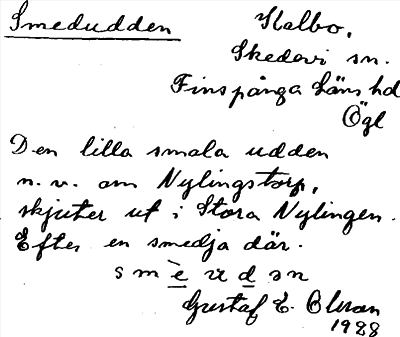 Smedudden
Kalbo,
Skedevi sn.
Finspånga läns hd
Ögl
Den lilla smala udden
n.v. om Nylingstorp,
skjuter ut i Stora Nylingen.
Efter en smedja där.
Gustaf E.
1928